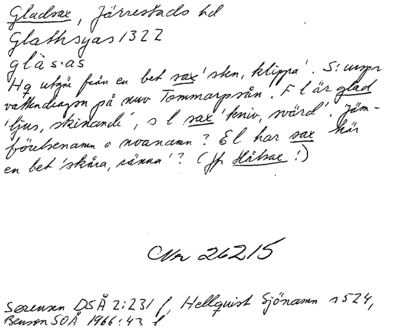 Gladsax, Järrestads hd
Glathsyas 1322
glàs·as
Ha utgå från en bet sax 'sten, klippa'. S: urspr
vattendragsn på nuv Tommarpsån. F l är glad
'ljus, skinande', s l sax 'kniv, svärd'. Jäm-
förelsenamn o novanamn? El har sax här
en bet 'skåra, ränna'? (Jfr Håksax!)
CMr 26215
Sørensen DSÅ 2:231 f, Hellquist Sjönamn s 524,
Benson SOÅ 1966:43 f